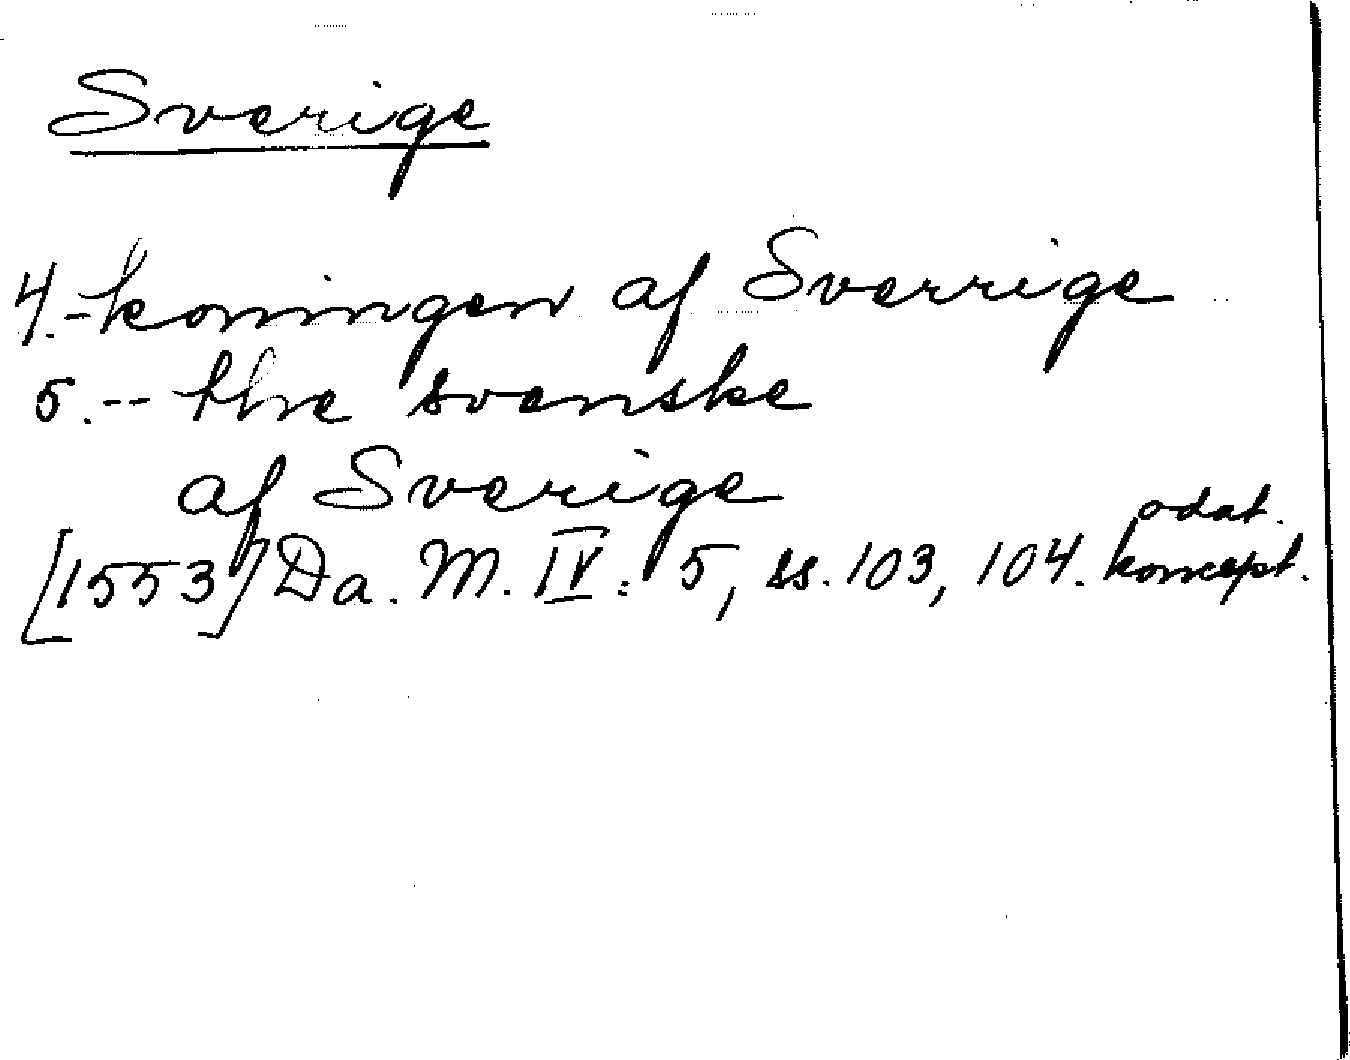 Sverige
4.- koningen af Sverrige
5.-- the svenske
af Sverige
odat.
[1553] Da. M. IV: 5, ss. 103, 104. koncept.